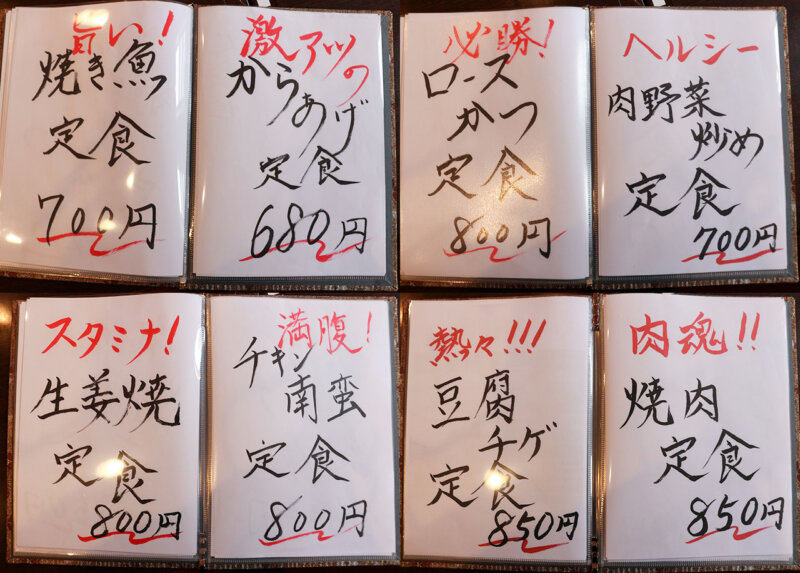 旨い!
焼き魚
定食
700円
激アツの
からあげ
定食
680円
必勝!
ロース
かつ
定食
800円
ヘルシー
肉野菜
炒め
定食
700円
スタミナ!
生姜焼
定食
800円
満腹!
チキン
南蛮
定食
800円
熱々!!!
豆腐
チゲ
定食
850円
肉魂!!
焼肉
定食
850円